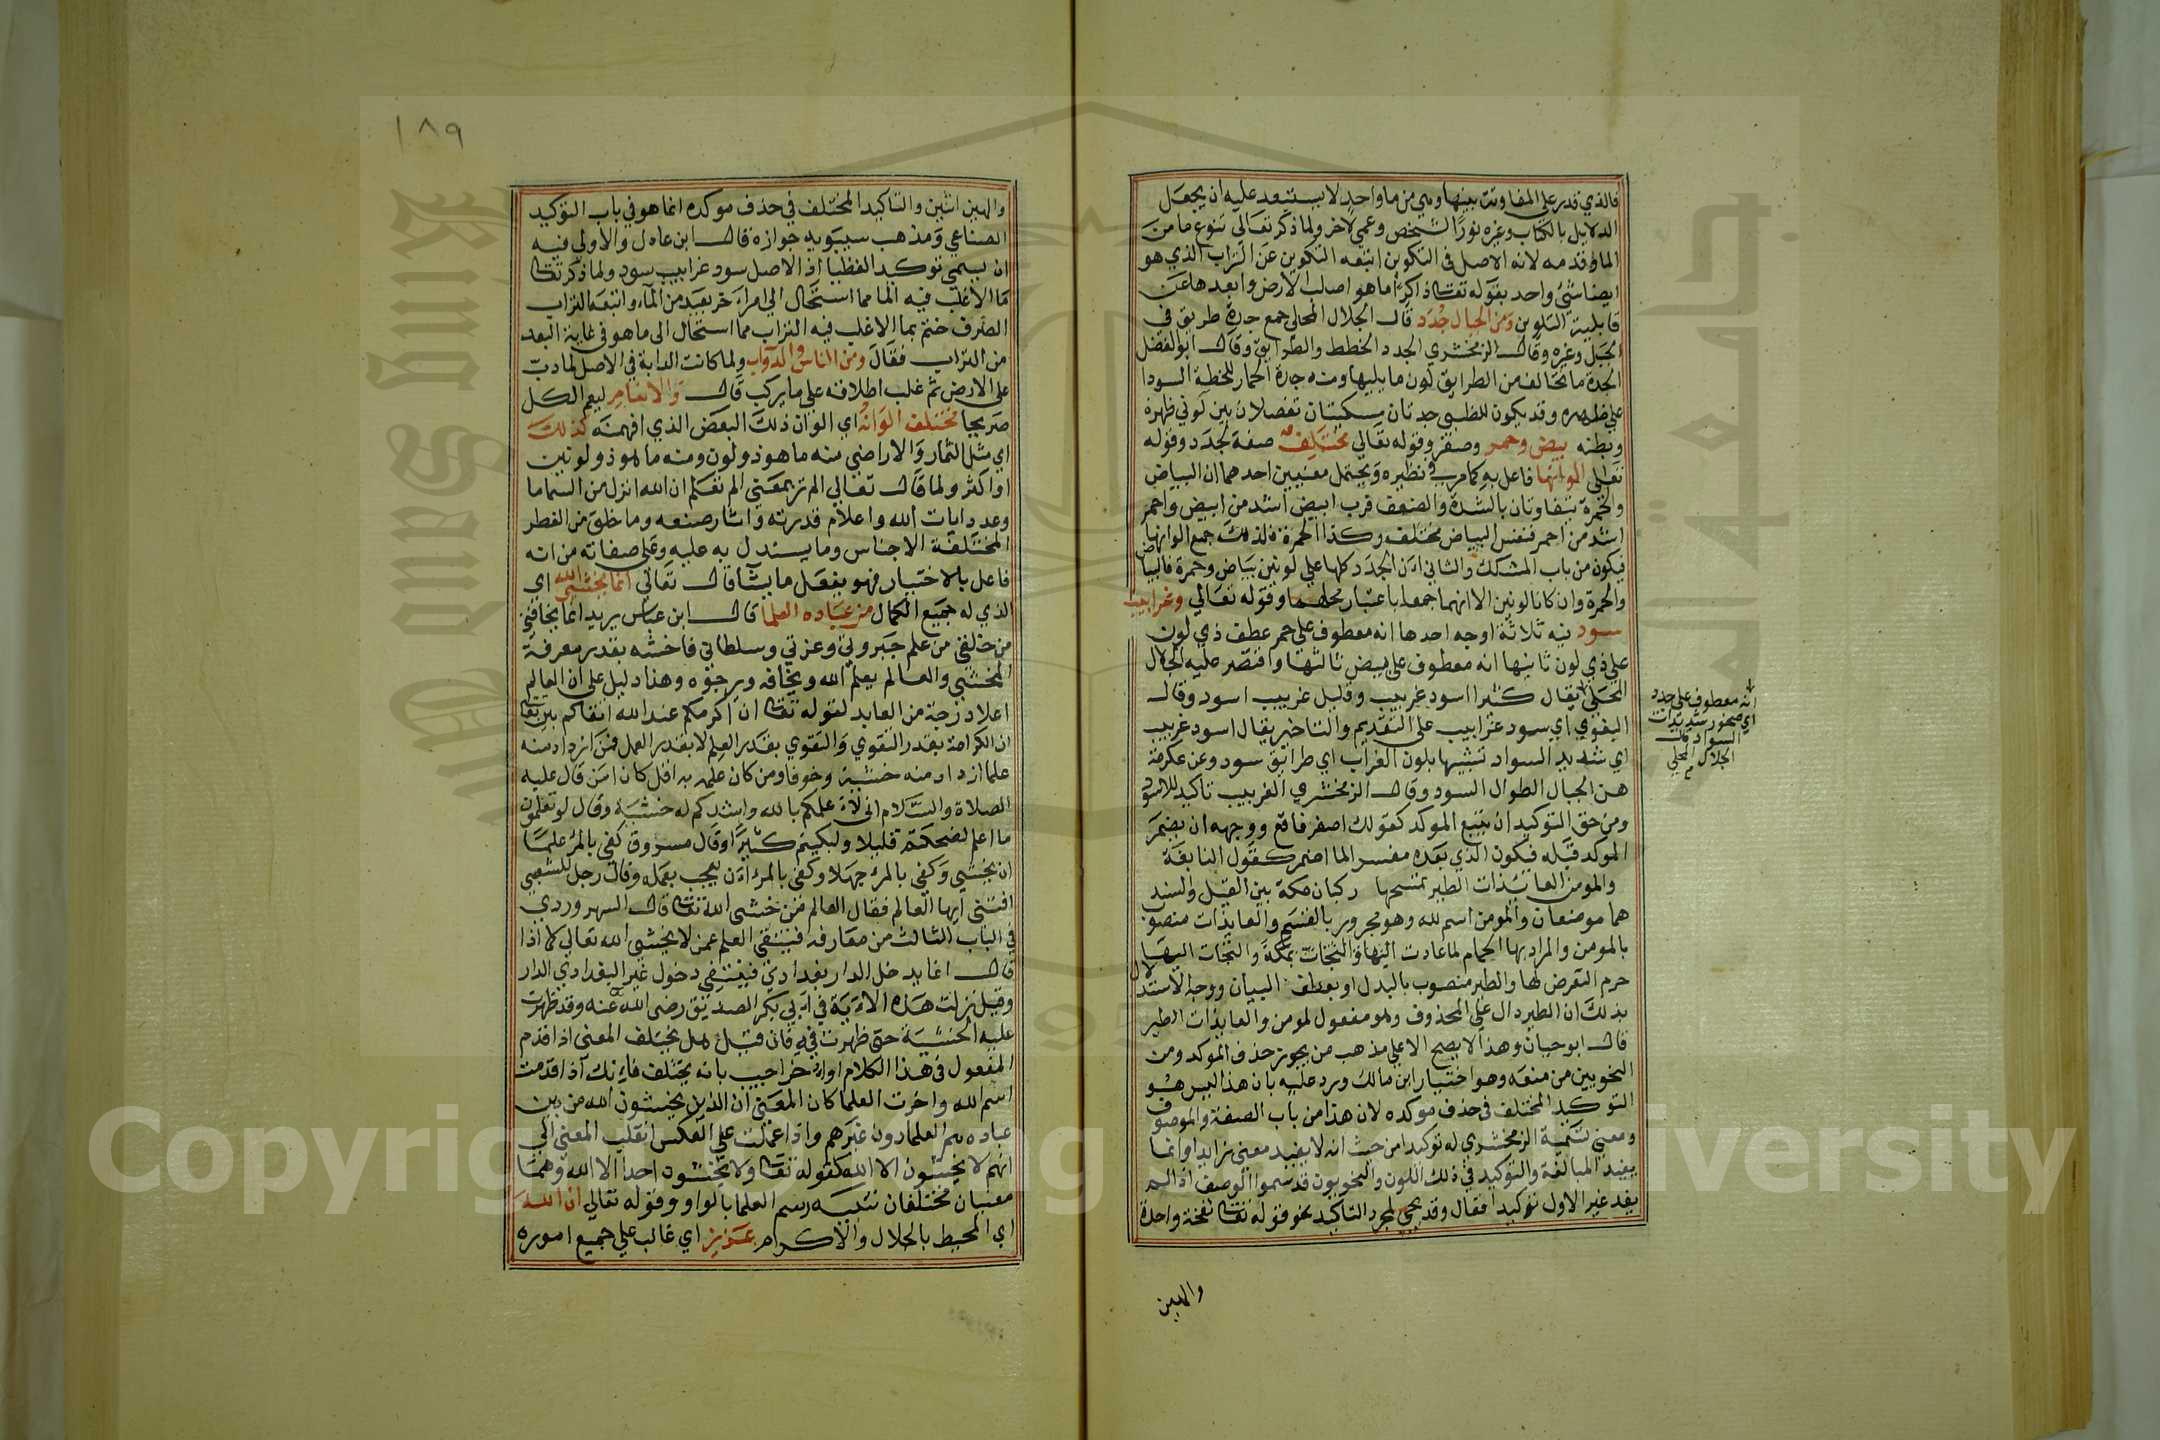 فالذي قدر على المفاوتة بينها وهي من ماء واحد لا يستبعد عليه ان يجعل
الدلايل بالكتاب وغيره نورا لشخص وعمي لاخر ولما ذكر تعالى تنوع ما من
الماء وقدمه لانه الاصل في التكوين اتبعه التكوين عن التراب الذي هو
ايضا شيء واحد بقوله تعالى ذاكرا ما هو اصلب الارض وابعدها عن
قابلية التلوين ومن الجبال جدد قال الجلال المحلي جمع جدة طريق في
الجبل وغيره وقال الزمخشري الجدد الخطط والطرايق وقال ابو الفضل
الجدة ما تخالف من الطرايق لون ما يليها ومنه جدة الحمار للخطة السودا
على ظهره وقد يكون للظبي جدتان مسكيتان تفصلان بين لوني ظهره
وبطنه بيض وحمر وصفر وقوله تعالى مختلف صفة لجدد وقوله
تعالى الوانها فاعل به كما مر في نظيره ويحتمل معنيين احدهما ان البياض
والحمرة تتفاوتان بالشدة والضعف فرب ابيض اشد من ابيض واحمر
اشد من احمر فنفس البياض مختلف وكذا الحمرة فلذلك جمع الوانها
فيكون من باب المشكك والثاني ان الجدد كلها على لونين بياض وحمرة فالبياض
والحمرة وان كانا لونين الا انهما جمعا باعتبار محلهما وقوله تعالي وغرابيب
سود فيه ثلاثة اوجه احدها انه معطوف على حمر عطف ذي لون
على ذي لون ثانيها انه معطوف على بيض ثالثها واقتصر عليه الجلال
المحلي يقال كثيرا اسود غربيب وقليل غربيب اسود وقال
البغوي اي سود غرابيب على التقديم والتاخير يقال اسود غربيب
اي شديد السواد تشبيها بلون الغراب اي طرايق سود وعن عكرمة
هن الجبال الطوال السود وقال الزمخشري الغربيب تاكيد للاسود
ومن حق التوكيد ان يتبع الموكد كقولك اصفر فاقع ووجهه ان يضمر
الموكد قبله فيكون الذي بعده مفسرا لما اضمر كقول النابغة
والمومن العايذات الطير تمسحها ركبان مكة بين الغيل والسند
هما موضعان والمومن اسم لله وهو مجرور بالقسم والعايذات منصوب
بالمومن والمراد بها الحمام لما عادت اليها والتجات بمكة والتجات اليها
حرم التعرض لها والطير منصوب بالبدل او بعطف البيان ووجه الاستدلال
بذلك ان الطير دال على المحذوف وهو مفعول لمومن والعايذات الطير
قال ابو حيان وهذا لا يصح الا على مذهب من يجوز حذف الموكد ومن
النحويين من منعه وهو اختيار ابن مالك ورد عليه بان هذا ليس هو
التوكيد المختلف في حذف موكده لان هذا من باب الصفة والموصوف
ومعنى تسمية الزمخشري له توكيدا من حيث انه لا يفيد معنى زايدا وانما
يفيد المبالغة والتوكيد في ذلك اللون والنحويون قد سموا الوصف اذا لم
يفد غير الاول توكيدا فقال وقد يجي لمجرد التاكيد نحو قوله تعالى نفخة واحدة
والهين
انه معطوف على جدد
اي صخور شديدات
السواد قاله
الجلال المحلي
١٨٩
والهين اثنين والتاكيد المختلف في حذف موكده انما هو في باب التوكيد
الصناعي ومذهب سيبويه جوازه قال ابن عادل والاولى فيه
ان يسمي توكيدا لفظيا اذ الاصل سود غرابيب سود ولما ذكر تعالى
ما الاغلب فيه الما مما استحال الى امر اخر بعيد من الماء واتبعه التراب
الصرف ختم بما الاغلب فيه التراب مما استحال الى ما هو في غاية البعد
من التراب فقال ومن الناس والدواب ولما كانت الدابة في الاصل لما دب
على الارض ثم غلب اطلاقه على ما يركب قال والانعام ليعم الكل
صريحا مختلف الوانه اي الوان ذلك البعض الذي افهمته كذلك
اي مثل الثمار والاراضي منه ما هو ذو لون ومنه ما هو ذو لونين
او اكثر ولما قال تعالي الم تر بمعنى الم تعلم ان الله انزل من السما ما
وعدد ايات الله واعلام قدرته واثار صنعه وما خلق من الفطر
المختلفة الاجناس وما يستدل به عليه وعلى صفاته من انه
فاعل بالاختيار فهو يفعل ما يشا قال تعالي انما يخشى الله اي
الذي له جميع الكمال من عباده العلما قال ابن عباس يريد انما يخافني
من خلقي من علم جبروتي وعزتي وسلطاني فاخشه بقدر معرفة
المخشي والعالم يعلم الله ويخافه ويرجوه وهذا دليل على ان العالم
اعلا درجة من العابد لقوله تعالى ان اكرمكم عند الله اتقاكم بين تعالى
ان الكرامة بقدر التقوي والتقوي بقدر العلم لا بقدر العمل فمن ازداد منه
علما ازداد منه خشية وخوفا ومن كان علمه به اقل كان امن قال عليه
الصلاة والسلام اني لانا علمكم بالله واشدكم له خشية وقال لو تعلمون
ما اعلم لضحكتم قليلا ولبكيتم كثيرا وقال مسروق كفى بالمرء علما
ان يخشي وكفى بالمرء جهلا وكفى بالمرء ان يعجب بعمله وقال رجل للشعبي
افتني ايها العالم فقال العالم من خشى الله تعالى قال السهروردي
في الباب الثالث من معارفه فينتفي العلم عمن لا يخشى الله تعالى كما اذا
قال انما يدخل الدار بغدادي فينتفي دخول غير البغدادي الدار
وقيل نزلت هذه الاية في ابي بكر الصديق رضى الله عنه وقد ظهرت
عليه الخشية حتى ظهرت فيه فان قيل هل يختلف المعنى اذا قدم
المفعول في هذا الكلام او اخر اجيب بانه يختلف فانك اذا قدمت
اسم الله واخرت العلما كان المعنى ان الذين يخشون الله من بين
عباده هم العلما دون غيرهم واذا عملت على العكس انقلب المعنى الى
انهم لا يخشون الا الله كقوله تعالى ولا يخشون احدا الا الله وهما
معنيان مختلفان تنبيه رسم العلما بالواو وقوله تعالي ان الله
اي المحيط بالجلال والاكرام عزيز اي غالب علي جميع اموره
Copyright © King Saud University